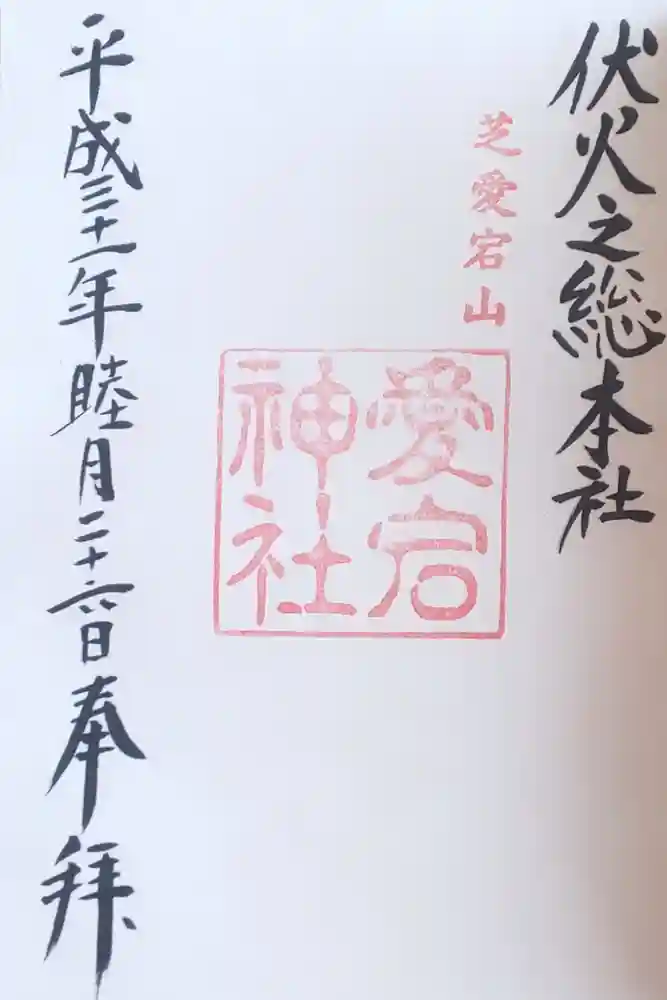 伏火之総本社
芝愛宕山
愛宕
神社
平成三十一年睦月二十六日奉拝